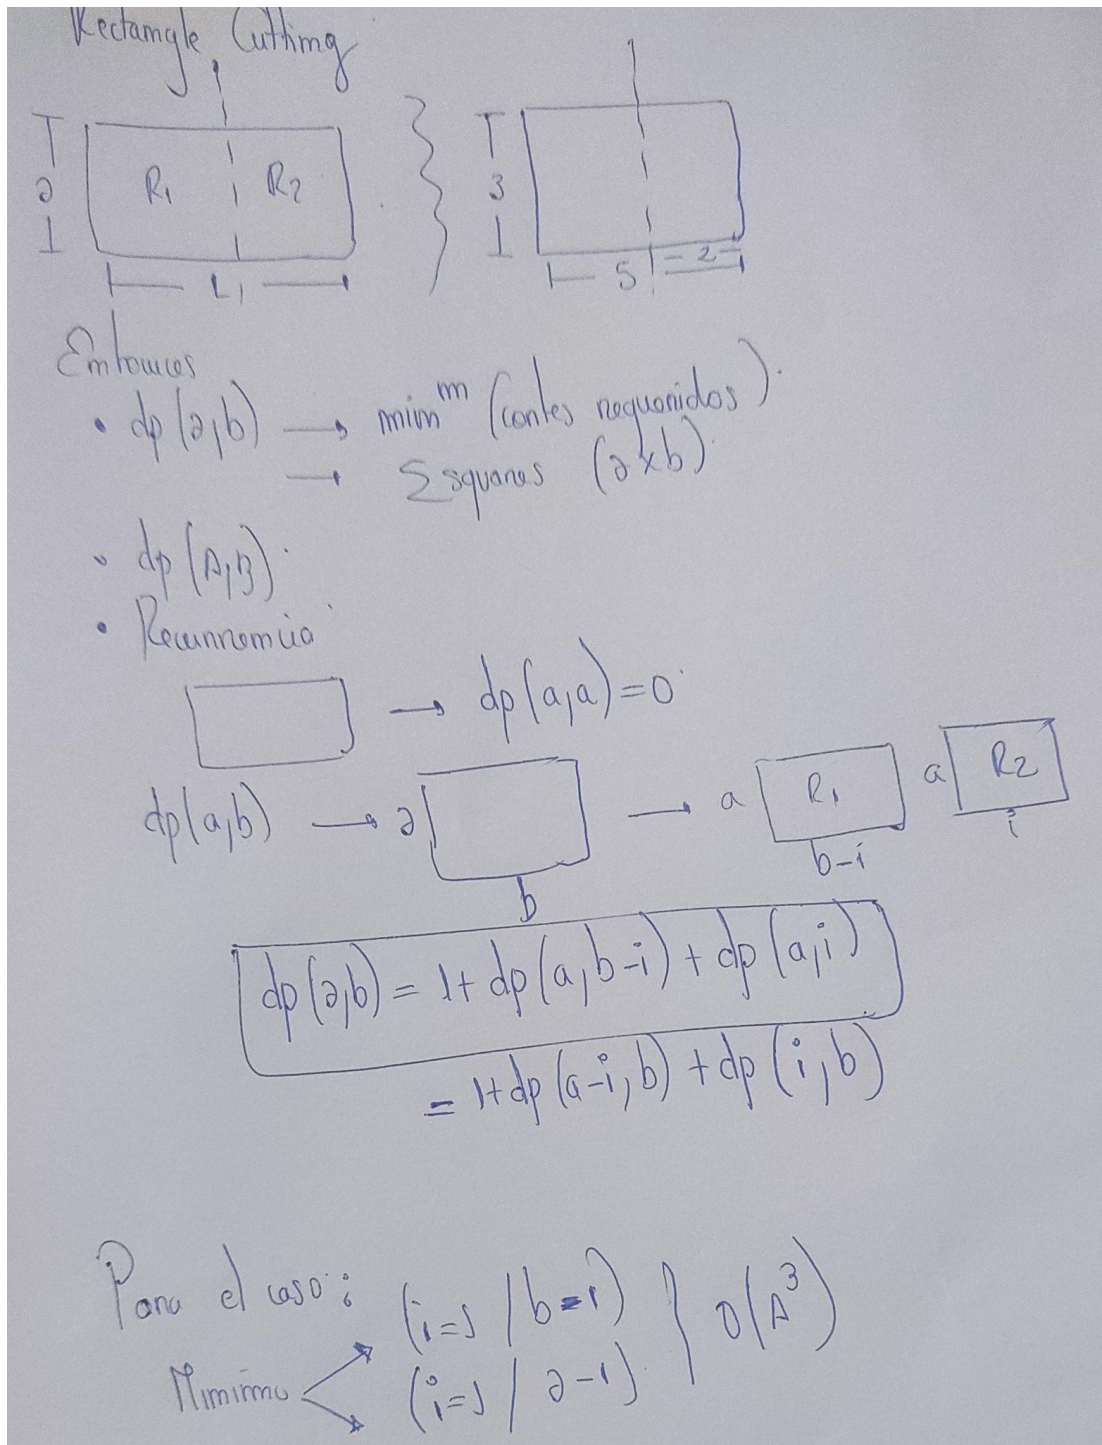 Rectangle Cutting
a R1 R2
L1
3
5 2
Entonces
• dp(a,b) → minm (cortes requeridos).
→ Σ squares (a×b)
• dp(A,B).
• Recurrencia
→ dp(a,a)=0
dp(a,b) → a → a R1 a R2
b b-i i
dp(a,b) = 1+ dp(a,b-i) + dp(a,i)
= 1+dp(a-i,b) + dp(i,b)
Para el caso: (i=1 / b-1) } O(A³)
Minimo (i=1 / a-1)